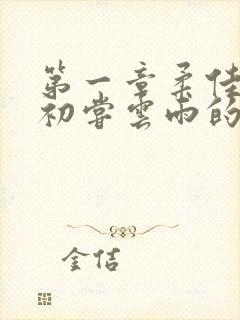 第一章柔佳
初尝雲雨的
金佶